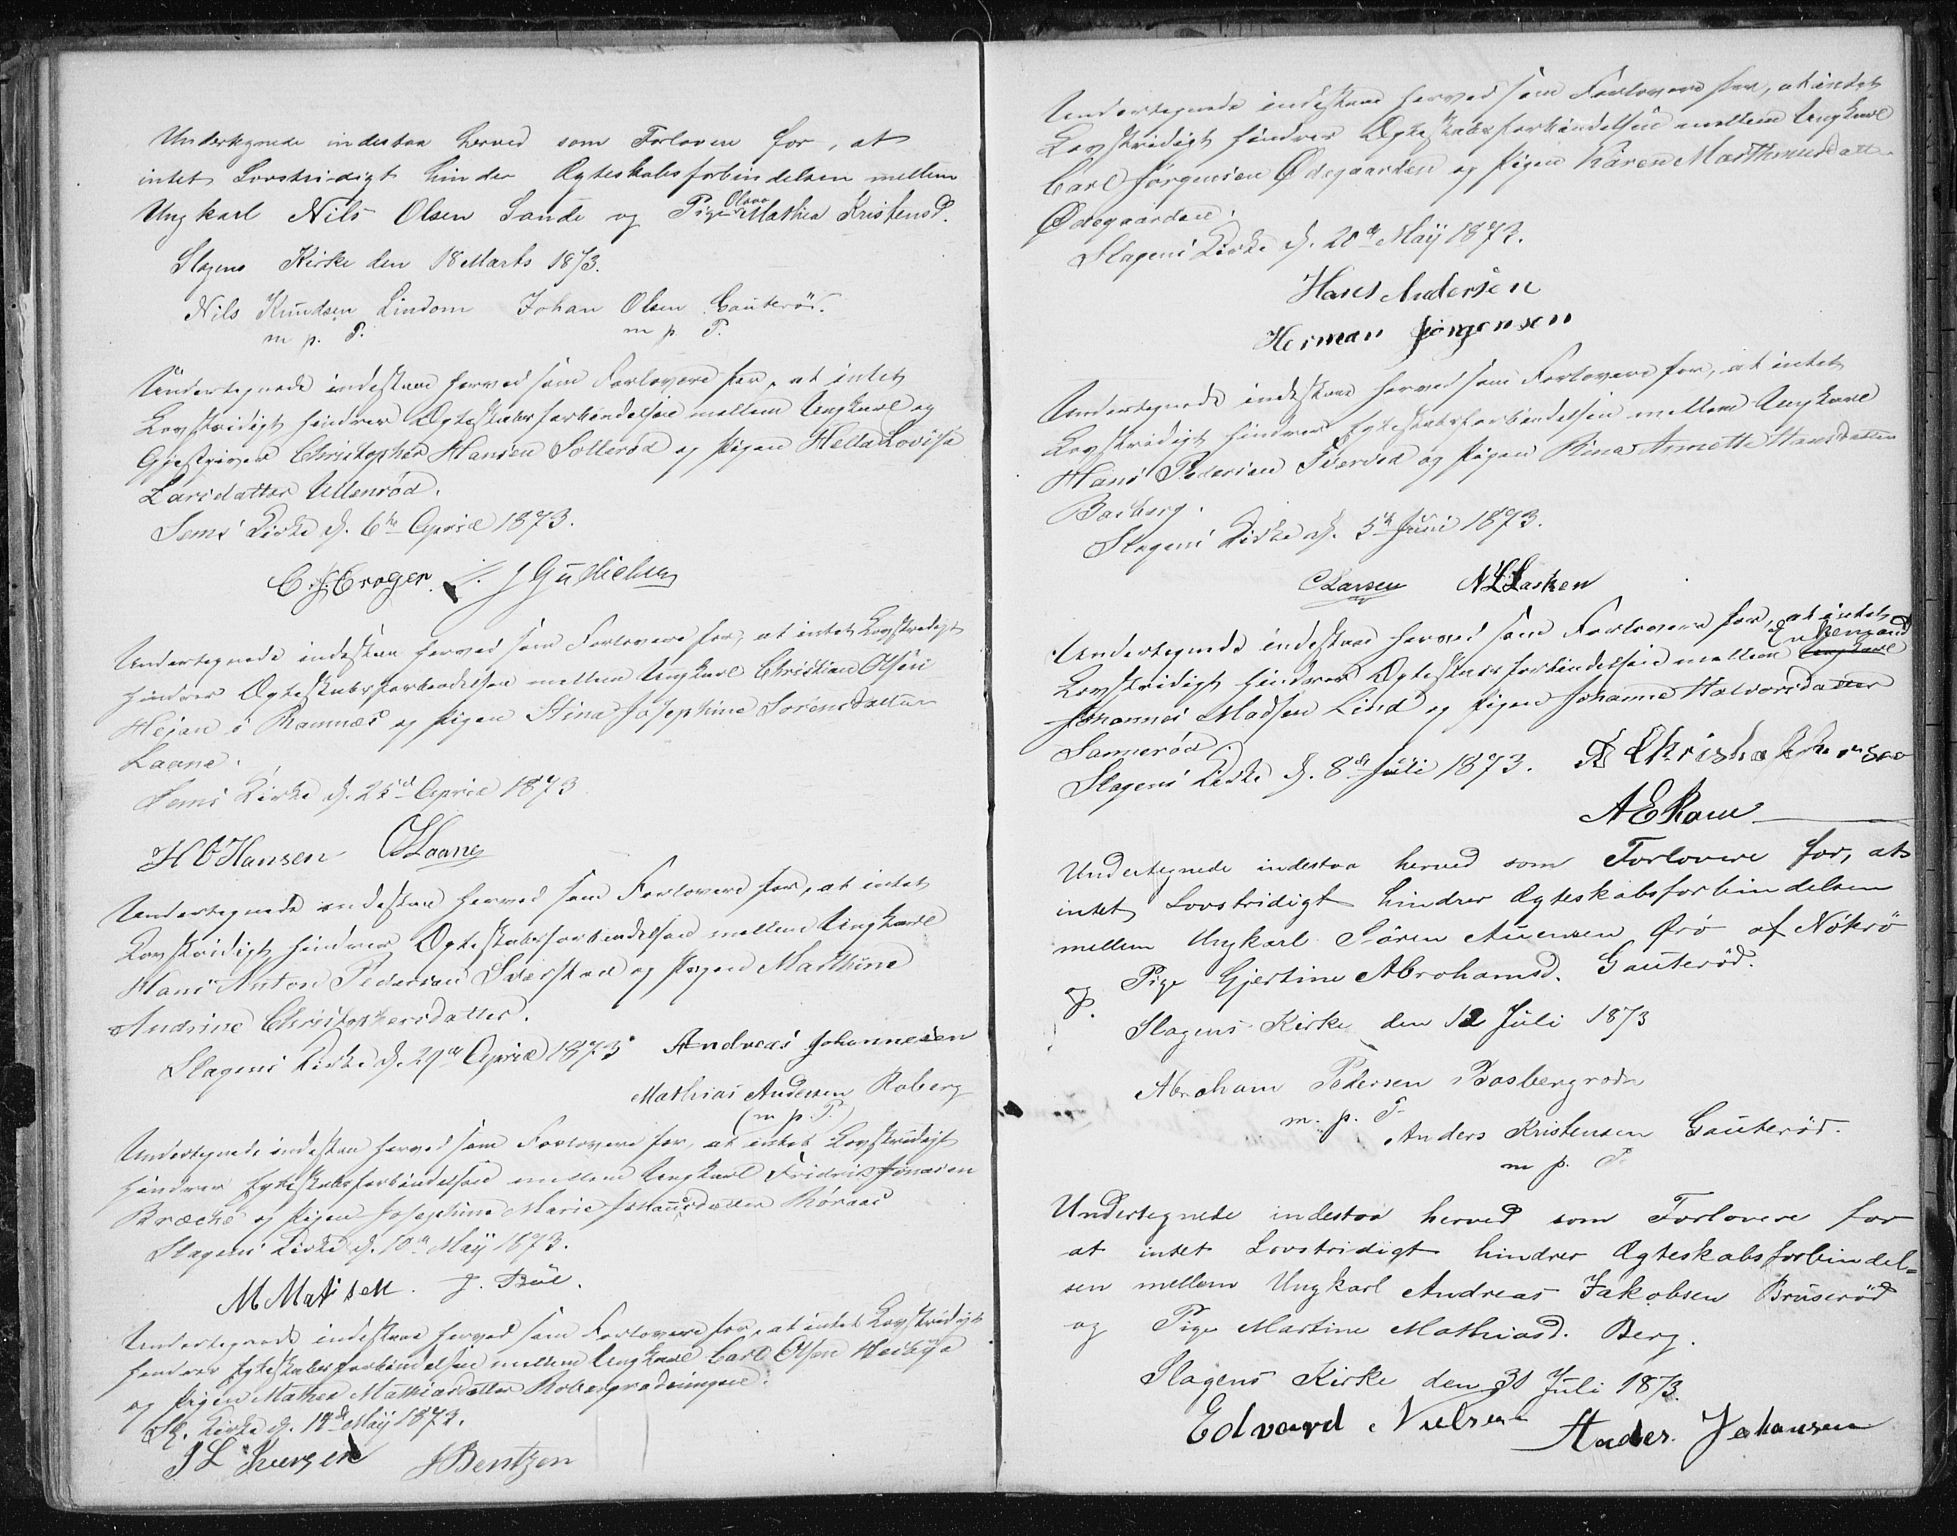 Undertegnede indestaa herved som Forlovere for, at
intet Lovstridigt hinder Ægteskabsforbindelsen mellem
Ungkarl Nils Olsen Sande og Pige Olava Mathea Kristensd.
Slagens Kirke den 18 Marts 1873.
Nils Knudsen Lindom Johan Olsen Gauterød.
m. p. P. m. p. P.
Undertegnede indestaae herved som Forlovere for, at intet
Lovstridigt hindrer Ægteskabsforbindelsen mellem Ungkarl og
Gjestgiver Christopher Hansen Sollerød og Pigen Hella Lovise
Larsdatter Ullenrød.
Sems Kirke d. 6te April 1873.
Undertegnede indestaa herved som Forlovere for, at intet Lovstridigt
hindrer Ægteskabsforbindelsen mellem Ungkarl Christian Olsen
Hejan i Ramnæs og Pigen Stina Josephine Sørensdatter
Laane.
Sems Kirke d. 25de April 1873
H O Hansen Laane
Undertegnede indestaae herved som Forlovere for, at intet
Lovstridigt hindrer Ægteskabsforbindelsen mellem Ungkarl
Hans Anton Pedersen Sverstad og Pigen Mathine
Andrine Christophersdatter.
Slagens Kirke d. 29de April 1873. Andreas Johannesen
Mathias Andersen Roberg
(m. p. P.)
Undertegnede indestaae herved som Forlovere for, at intet Lovstridigt
hindrer Ægteskabsforbindelsen mellem Ungkarl Fridrik Jonasen
Bræche og Pigen Josephine Marie Johansdatter Røraas
Slagens Kirke d. 10de Maij 1873.
M Matisen. J. Bøe.
Undertegnede indestaae herved som Forlovere for, at intet Lovstridigt
hindrer Ægteskabsforbindelsen mellem Ungkarl Carl Olsen
og Pigen Mathea Mathiasdatter Robergrødningen.
Sl. Kirke d. 18de Maij 1873.
J L Iversen J Bentzen
Undertegnede indestaae herved som Forlovere for, at intet
Lovstridigt hindrer Ægteskabsforbindelsen mellem Ungkarl
Carl Jørgensen Ødegaarden og Pigen Karen Marthinusdatter
Ødegaarden.
Slagens Kirke d. 20de Maij 1873.
Hans Andersen
Herman Jørgensen
Undertegnede indestaae herved som Forlovere for, at intet
Lovstridigt hindrer Ægteskabsforbindelsen mellem Ungkarl
Hans Pedersen og Pigen Rina Annette Hansdatter
Basberg.
Slagens Kirke d. 5te Juni 1873.
C Larsen N L Larsen
Undertegnede indestaae herved som Forlovere for, at intet
Lovstridigt hindrer Ægteskabsforbindelsen mellem Ungkarl Enkemand
Johannes Madsen Lind og Pigen Johanne Halvorsdatter
Sannerød.
Slagens Kirke d. 8de Juli 1873. Christophersen
A E Ram
Undertegnede indestaa herved som Forlovere for, at
intet Lovstridigt hindrer Ægteskabsforbindelsen
mellem Ungkarl Sören Auensen Örö af Nøtrö
og Pige Gjertine Abrahamsd. Gauterød.
Slagens Kirke den 12 Juli 1873
Abraham Pedersen Basbergrødn
m. p. P.
Anders Kristensen Gauterød.
m. p. P.
Undertegnede indestaa herved som Forlovere for
at intet Lovstridigt hindrer Ægteskabsforbindel=
sen mellem Ungkarl Andreas Jakobsen Bruserød
og Pige Martine Mathiasd. Berg.
Slagens Kirke den 31 Juli 1873.
Edvard Nielsen Anders Johansen